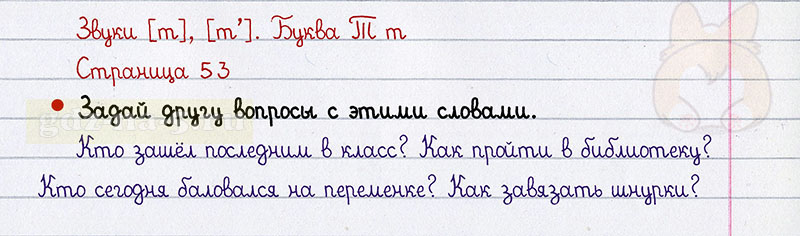 Звуки [т], [т’]. Буква Т т
Страница 53
Задай другу вопросы с этими словами.
Кто зашёл последним в класс? Как пройти в библиотеку?
Кто сегодня баловался на переменке? Как завязать шнурки?